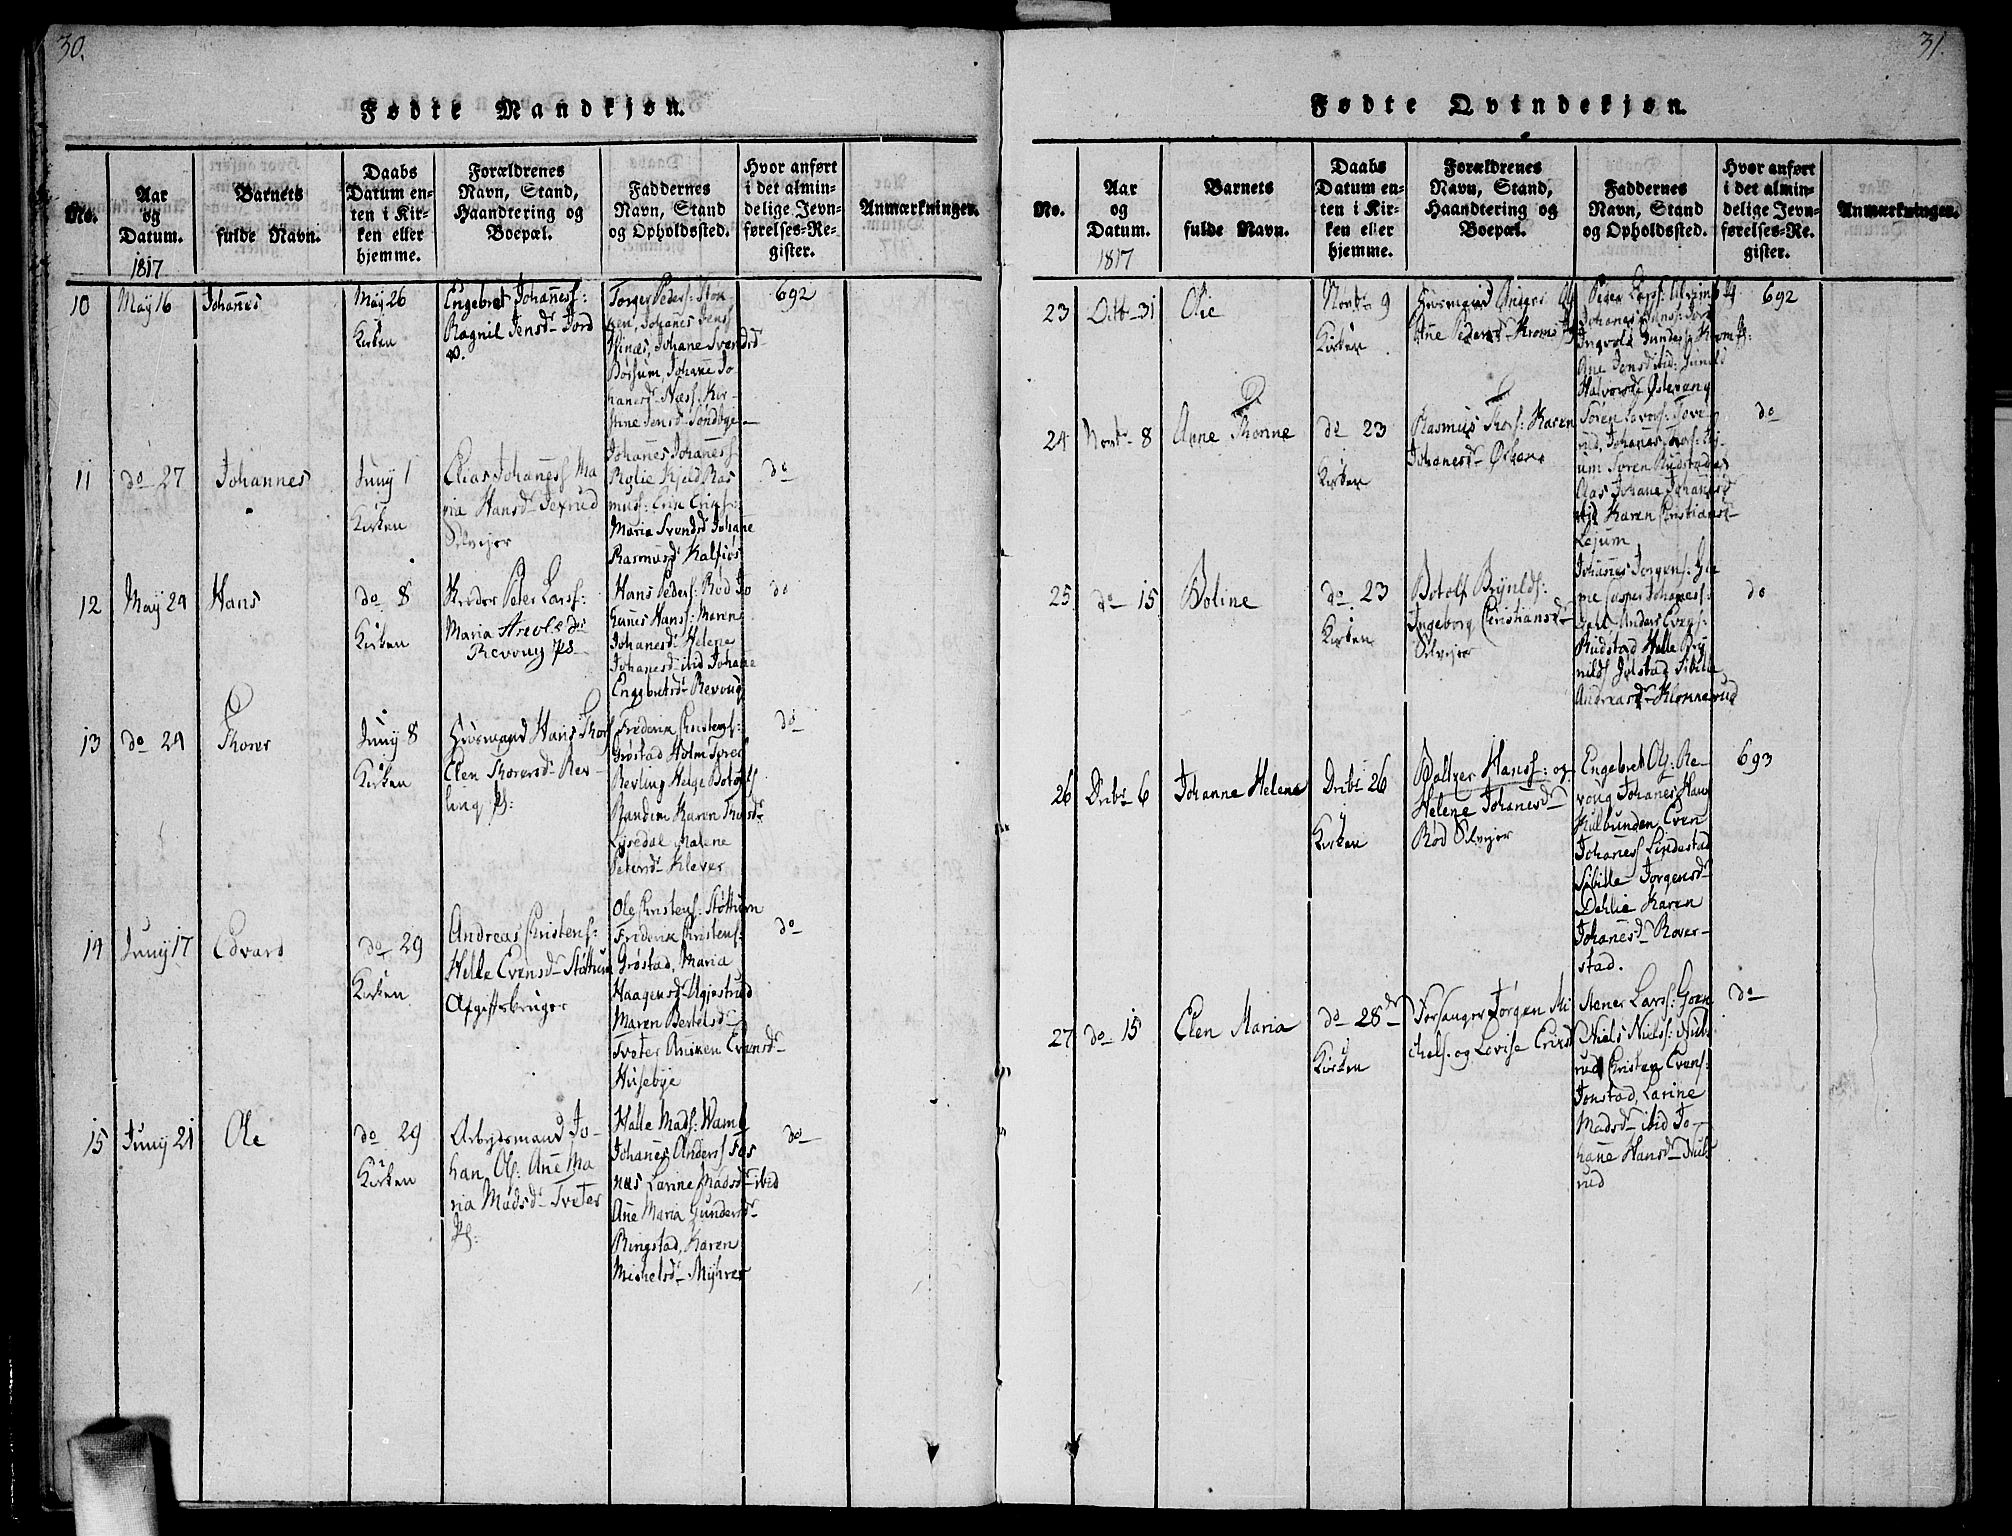 30.
Fødte Mandkjøn.
No.
Aar
og
Datum.
1817
Barnets
fulde Navn.
Daabs
Datum en-
ten i Kir-
ken eller
hjemme.
Forældrenes
Navn, Stand,
Haandtering og
Boepæl.
Faddernes
Navn, Stand
og Opholdssted.
Hvor anført
i det almin-
delige Jevn-
førelses-Re-
gister.
Anmærkninger.
10
May 16
Johanes
May 26
Kirken
Engebret Johanesf:
Ragnil Jensd. Jord
Torger Peders: Stok
ken, Johanes Jens
Johane Svendsd
Børsum, Johane Jo
hanesd Næss. Kir-
stine Jensd Søndbye
692
11
do 27
Johannes
Juny 1
Kirken
Elias Johanesf Ma
ria Hansd
Selvejer
Johanes Johanesf
Rolie Kjeld Ras
musf: Erik Erichs:
Maria Svendsd Johane
Rasmusd Kalfios
do
12
May 24
Hans
do 8
Kirken
Peter Larsf:
Maria
Revoug
Hans Peders: Rød Jo
hanes Hansf: Maren
Johanesd Helene
Johanesd ibid Johane
Engebretsd Revoug
do
13
do 24
Thorer
Juny 8
Kirken
Huusmand Hans Thor
Elen Thorersd Rev-
ling Pl:
Frederik Christens:
Grøstad Holm Tored
Revling Helge Botolfs
Randem Karen Thorsd
Lysedal Malene
Petersd Klever
do
14
Juny 17
Edvard
do 29
Kirken
Andreas Christens:
Helle Evensd Støttum
Afgiftsbruger
Ole Christens: Støttum
Frederik Christens:
Grøstad, Maria
Haagensd Agjestrud
Maren Bertelsd
Tveter Aniken Evensd
Husebye
do
15
Juny 21
Ole
do 29
Kirken
Arbejdsmand Jo-
han Ols: Ane Ma
ria Madsd Tveter
Pl:
Halle Mads: Wam
Johanes Anders Fos
næs Larine Madsd ibid
Ane Maria Gundersd
Ringstad, Karen
Michelsd Myhrer
do
31.
Fødte Qvindekjøn.
No.
Aar
og
Datum.
1817
Barnets
fulde Navn.
Daabs
Datum en-
ten i Kir-
ken eller
hjemme.
Forældrenes
Navn, Stand,
Haandtering og
Boepæl.
Faddernes
Navn, Stand
og Opholdssted.
Hvor anført
i det almin-
delige Jevn-
førelses-Re-
gister.
Anmærkninger.
23
Octb 31
Olie
Novbr 9
Kirken
Huusmand
Ane Pedersd
Peder Lars:
Johanes Hans:
Ingvold Gunders:
Ane Jensd ibid: Gunild
Halvorsd Østevang
692
24
Novbr 8
Anne Thorine
do 23
Kirken
Rasmus Thors: Karen
Johanesd
Søren
rud, Johanes
um Søren Rudstad
Aas Johane Johanesd
ibid Karen Christiansd
Lajum
do
25
do 15
Boline
do 23
Kirken
Botolf Brynilds:
Ingeborg Christiansd
Selvejer
Johanes Jørgens:
Casper Johanes:
Dahl Anders Evens:
Rudstad Helle Bry
nilds Jølstad Sibille
Andreasd Klonnerud
do
26
Decbr 6
Johanne Helene
Decbr 26
Kirken
Baltzer Hansf: og
Helene Johanesd
Rød Selvejer
Engebret Ols: Re-
voug Johanes Haug
Kulbunden Even
Johanesf Lindestad
Sibille Jørgensd
Dehlie Karen
Johanesd Rover-
stad.
693
27
do 15
Elen Maria
do 28de
Kirken
Forsanger Jørgen Mi
chels: og Lovise Ericsd
Stener Lars: Goen
Niels Niels:
rud Christen Evens:
Jonstad, Larine
Madsd ibid Jo-
hane Hansd
rud
do